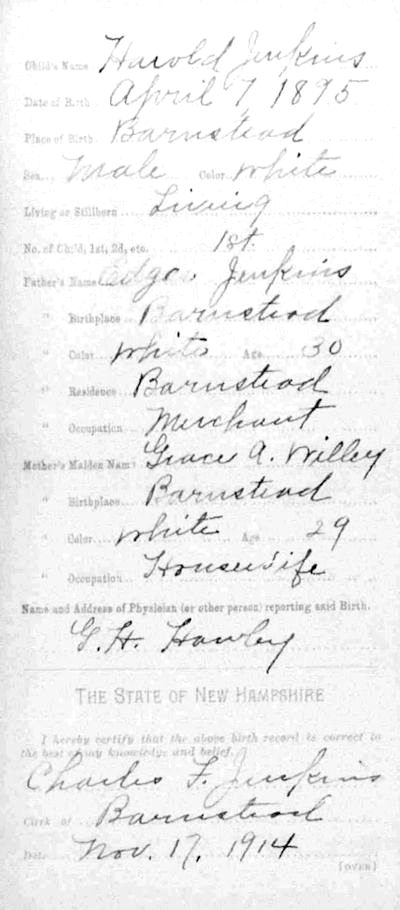 Child's Name Harold Jenkins
Date of Birth April 7 1895
Place of Birth Barnstead
Sex Male Color White
Living or Stillborn Living
No. of Child, 1st, 2d, etc. 1st
Father's Name Edgar Jenkins
" Birthplace Barnstead
" Color White Age 30
" Residence Barnstead
" Occupation Merchant
Mother's Maiden Name Grace A. Willey
" Birthplace Barnstead
" Color White Age 29
" Occupation Housewife
Name and Address of Physician (or other person) reporting said Birth.
G. H. Hawley
THE STATE OF NEW HAMPSHIRE
I hereby certify that the above birth record is correct to
the best of my knowledge and belief.
Charles F. Jenkins
Clerk of Barnstead
Date Nov. 17, 1914
[OVER]